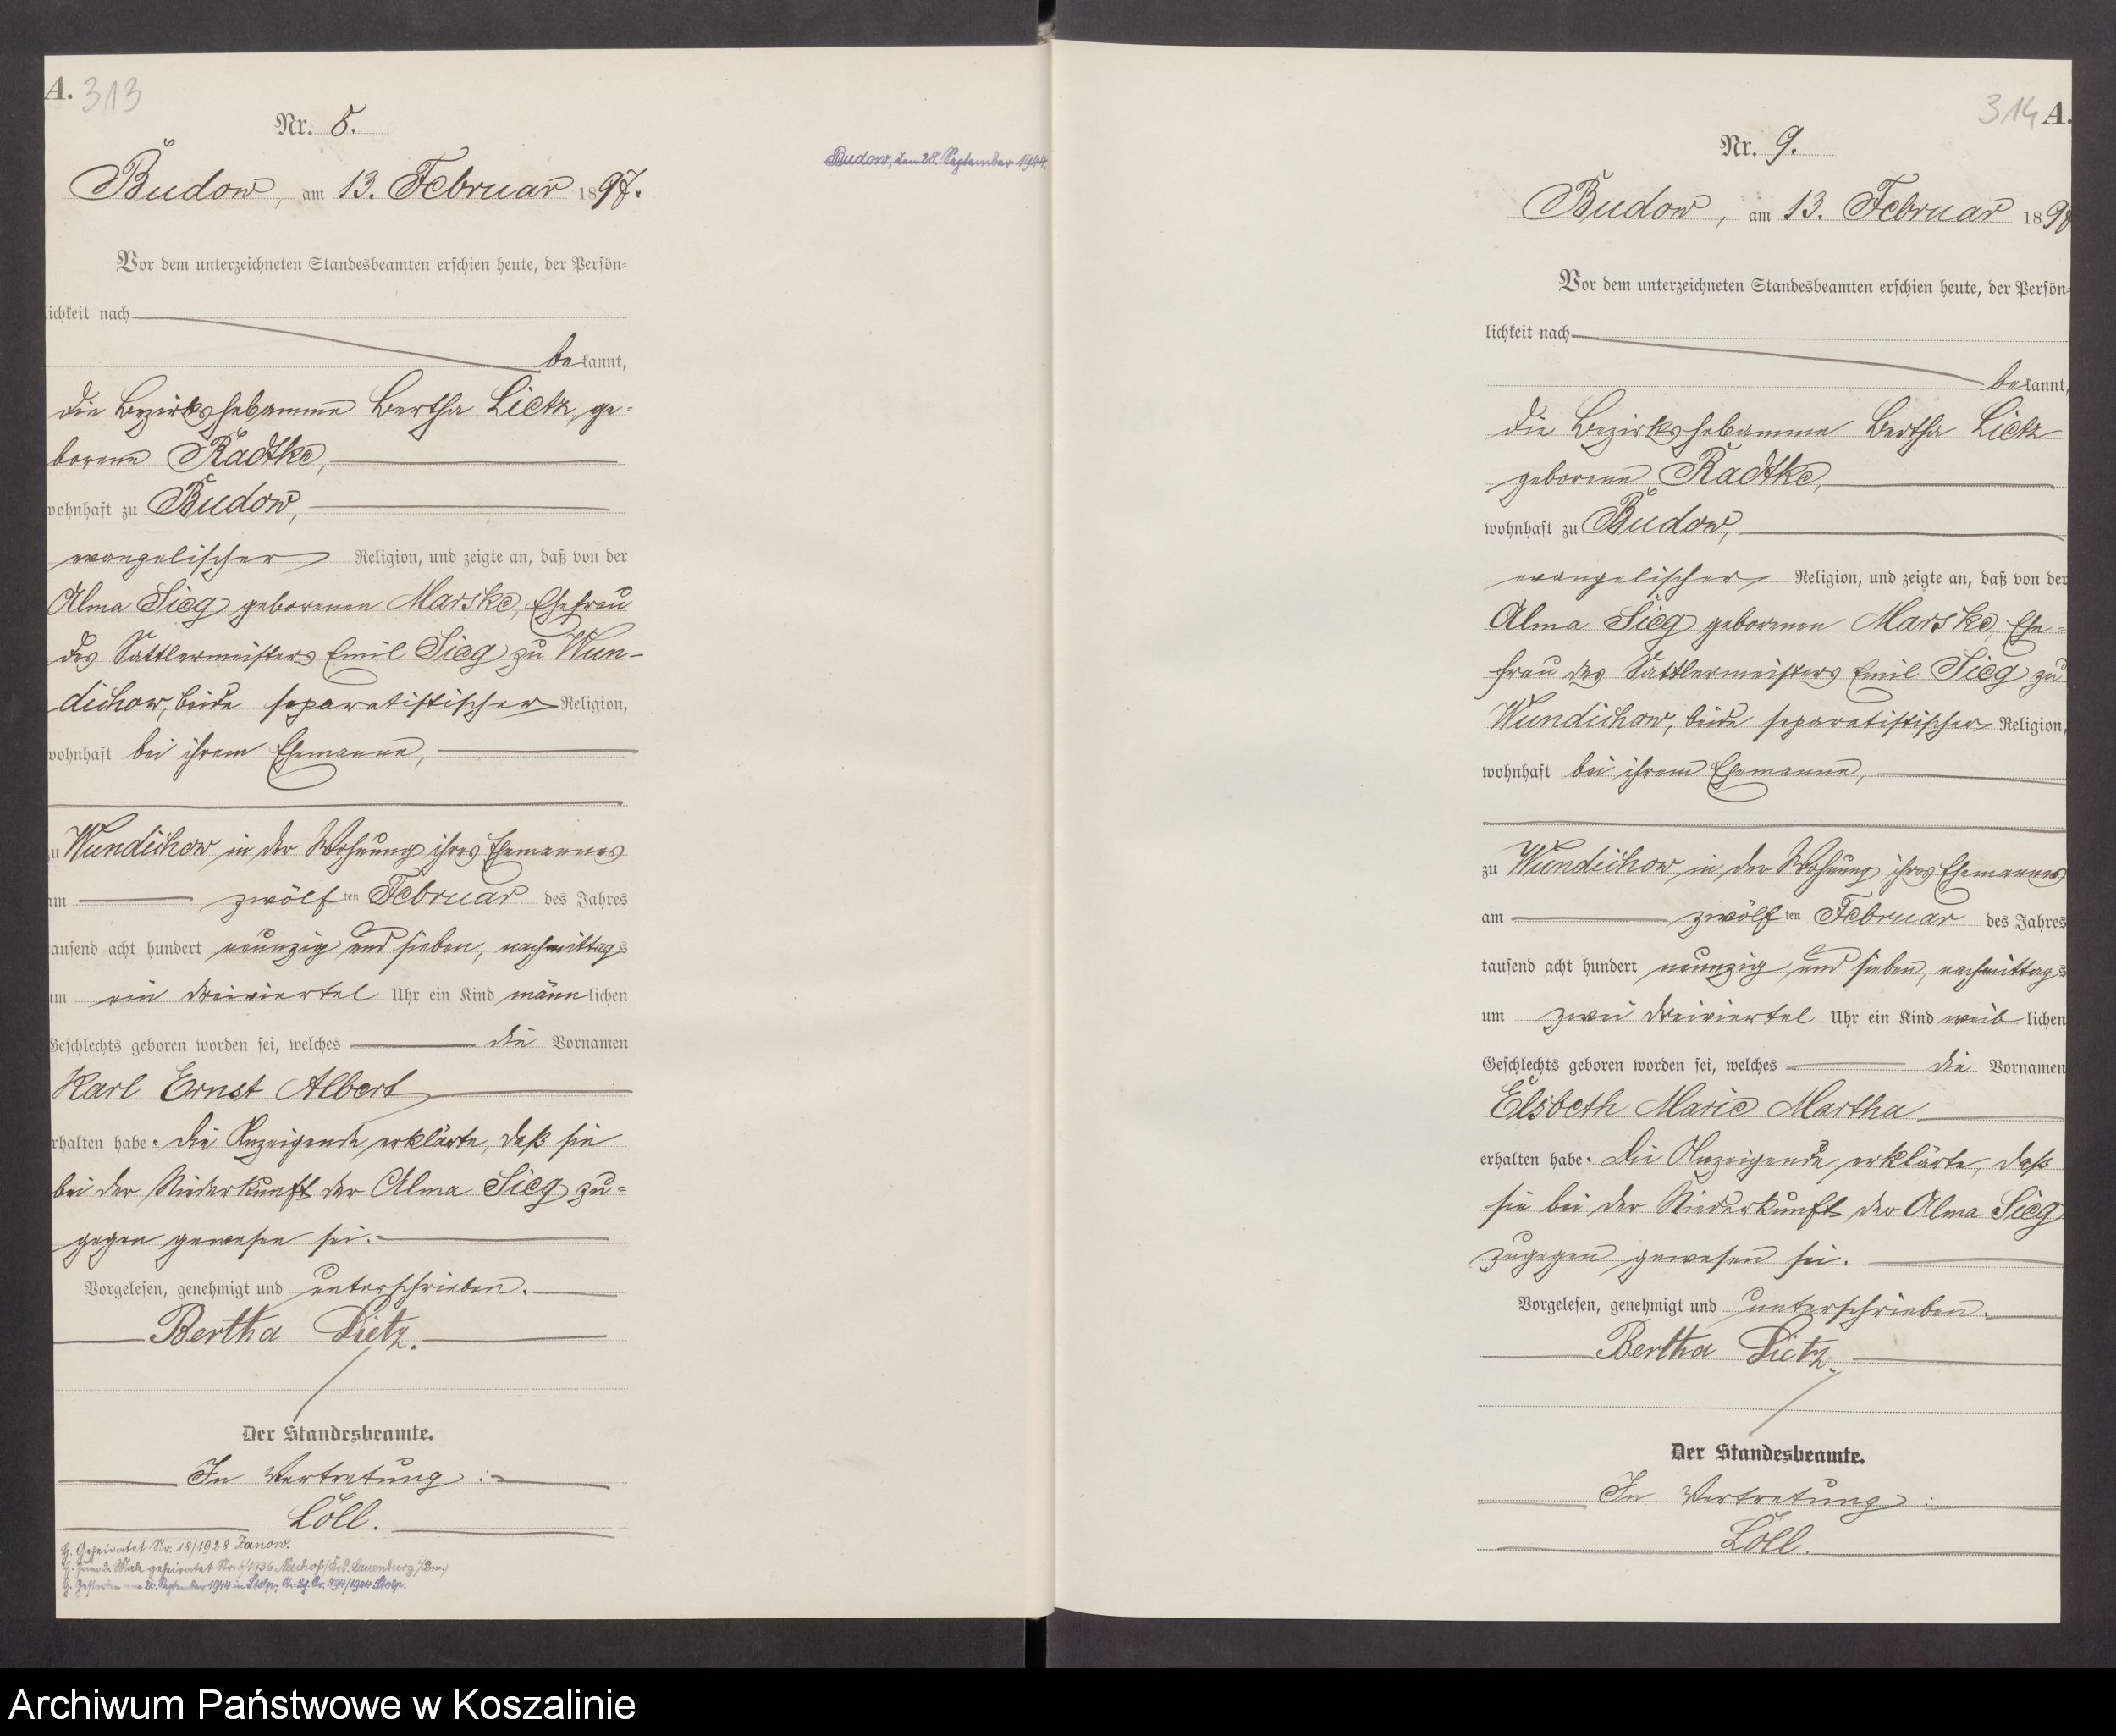 A. 313
Nr. 8.
Budow, am 13. Februar 1897.
Budow, den 28. September 1944.
Vor dem unterzeichneten Standesbeamten erschien heute, der Persön-
lichkeit nach
bekannt,
die Bezirkshebamme Bertha Lietz, ge-
borene Radtke,
wohnhaft zu Budow,
evangelischer Religion, und zeigte an, daß von der
Alma Sieg geborenen Marske, Ehefrau
des Sattlermeisters Emil Sieg zu Wun-
dichow, beide separatistischer Religion,
wohnhaft bei ihrem Ehemanne,
zu Wundichow in der Wohnung ihres Ehemannes
am zwölften Februar des Jahres
tausend acht hundert neunzig und sieben, nachmittags
um ein dreiviertel Uhr ein Kind männlichen
Geschlechts geboren worden sei, welches die Vornamen
Karl Ernst Albert
erhalten habe. Die Anzeigende erklärte, daß sie
bei der Niederkunft der Alma Sieg zu-
gegen gewesen sei.
Vorgelesen, genehmigt und unterschrieben.
Bertha Lietz.
Der Standesbeamte.
In Vertretung:
Löll.
H. Geheiratet Nr. 18/1928 Zanow.
H. zum 2. Male geheiratet Nr. 6/1936 Neuhof (Krs. Lauenburg i/Pom)
H. Gestorben am 20. September 1944 in Stolp, St. A. Nr. 494/1944 Stolp.
314 A.
Nr. 9.
Budow, am 13. Februar 1897
Vor dem unterzeichneten Standesbeamten erschien heute, der Persön-
lichkeit nach
bekannt,
die Bezirkshebamme Bertha Lietz
geborene Radtke,
wohnhaft zu Budow,
evangelischer Religion, und zeigte an, daß von der
Alma Sieg geborenen Marske, Ehe-
frau des Sattlermeisters Emil Sieg zu
Wundichow, beide separatistischer Religion,
wohnhaft bei ihrem Ehemanne,
zu Wundichow in der Wohnung ihres Ehemannes
am zwölften Februar des Jahres
tausend acht hundert neunzig und sieben, nachmittags
um zwei dreiviertel Uhr ein Kind weiblichen
Geschlechts geboren worden sei, welches die Vornamen
Elsbeth Marie Martha
erhalten habe. Die Anzeigende erklärte, daß
sie bei der Niederkunft der Alma Sieg
zugegen gewesen sei.
Vorgelesen, genehmigt und unterschrieben.
Bertha Lietz.
Der Standesbeamte.
In Vertretung:
Löll.
Archiwum Państwowe w Koszalinie